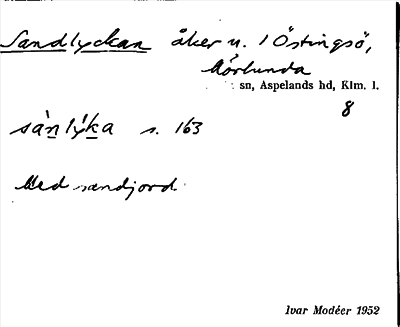 Sandlyckan åker n. 1 Östingsö,
Mörlunda
sn, Aspelands hd, Klm. l.
8
sàn̠lýk̠a s. 163
Med sandjord
Ivar Modéer 1952